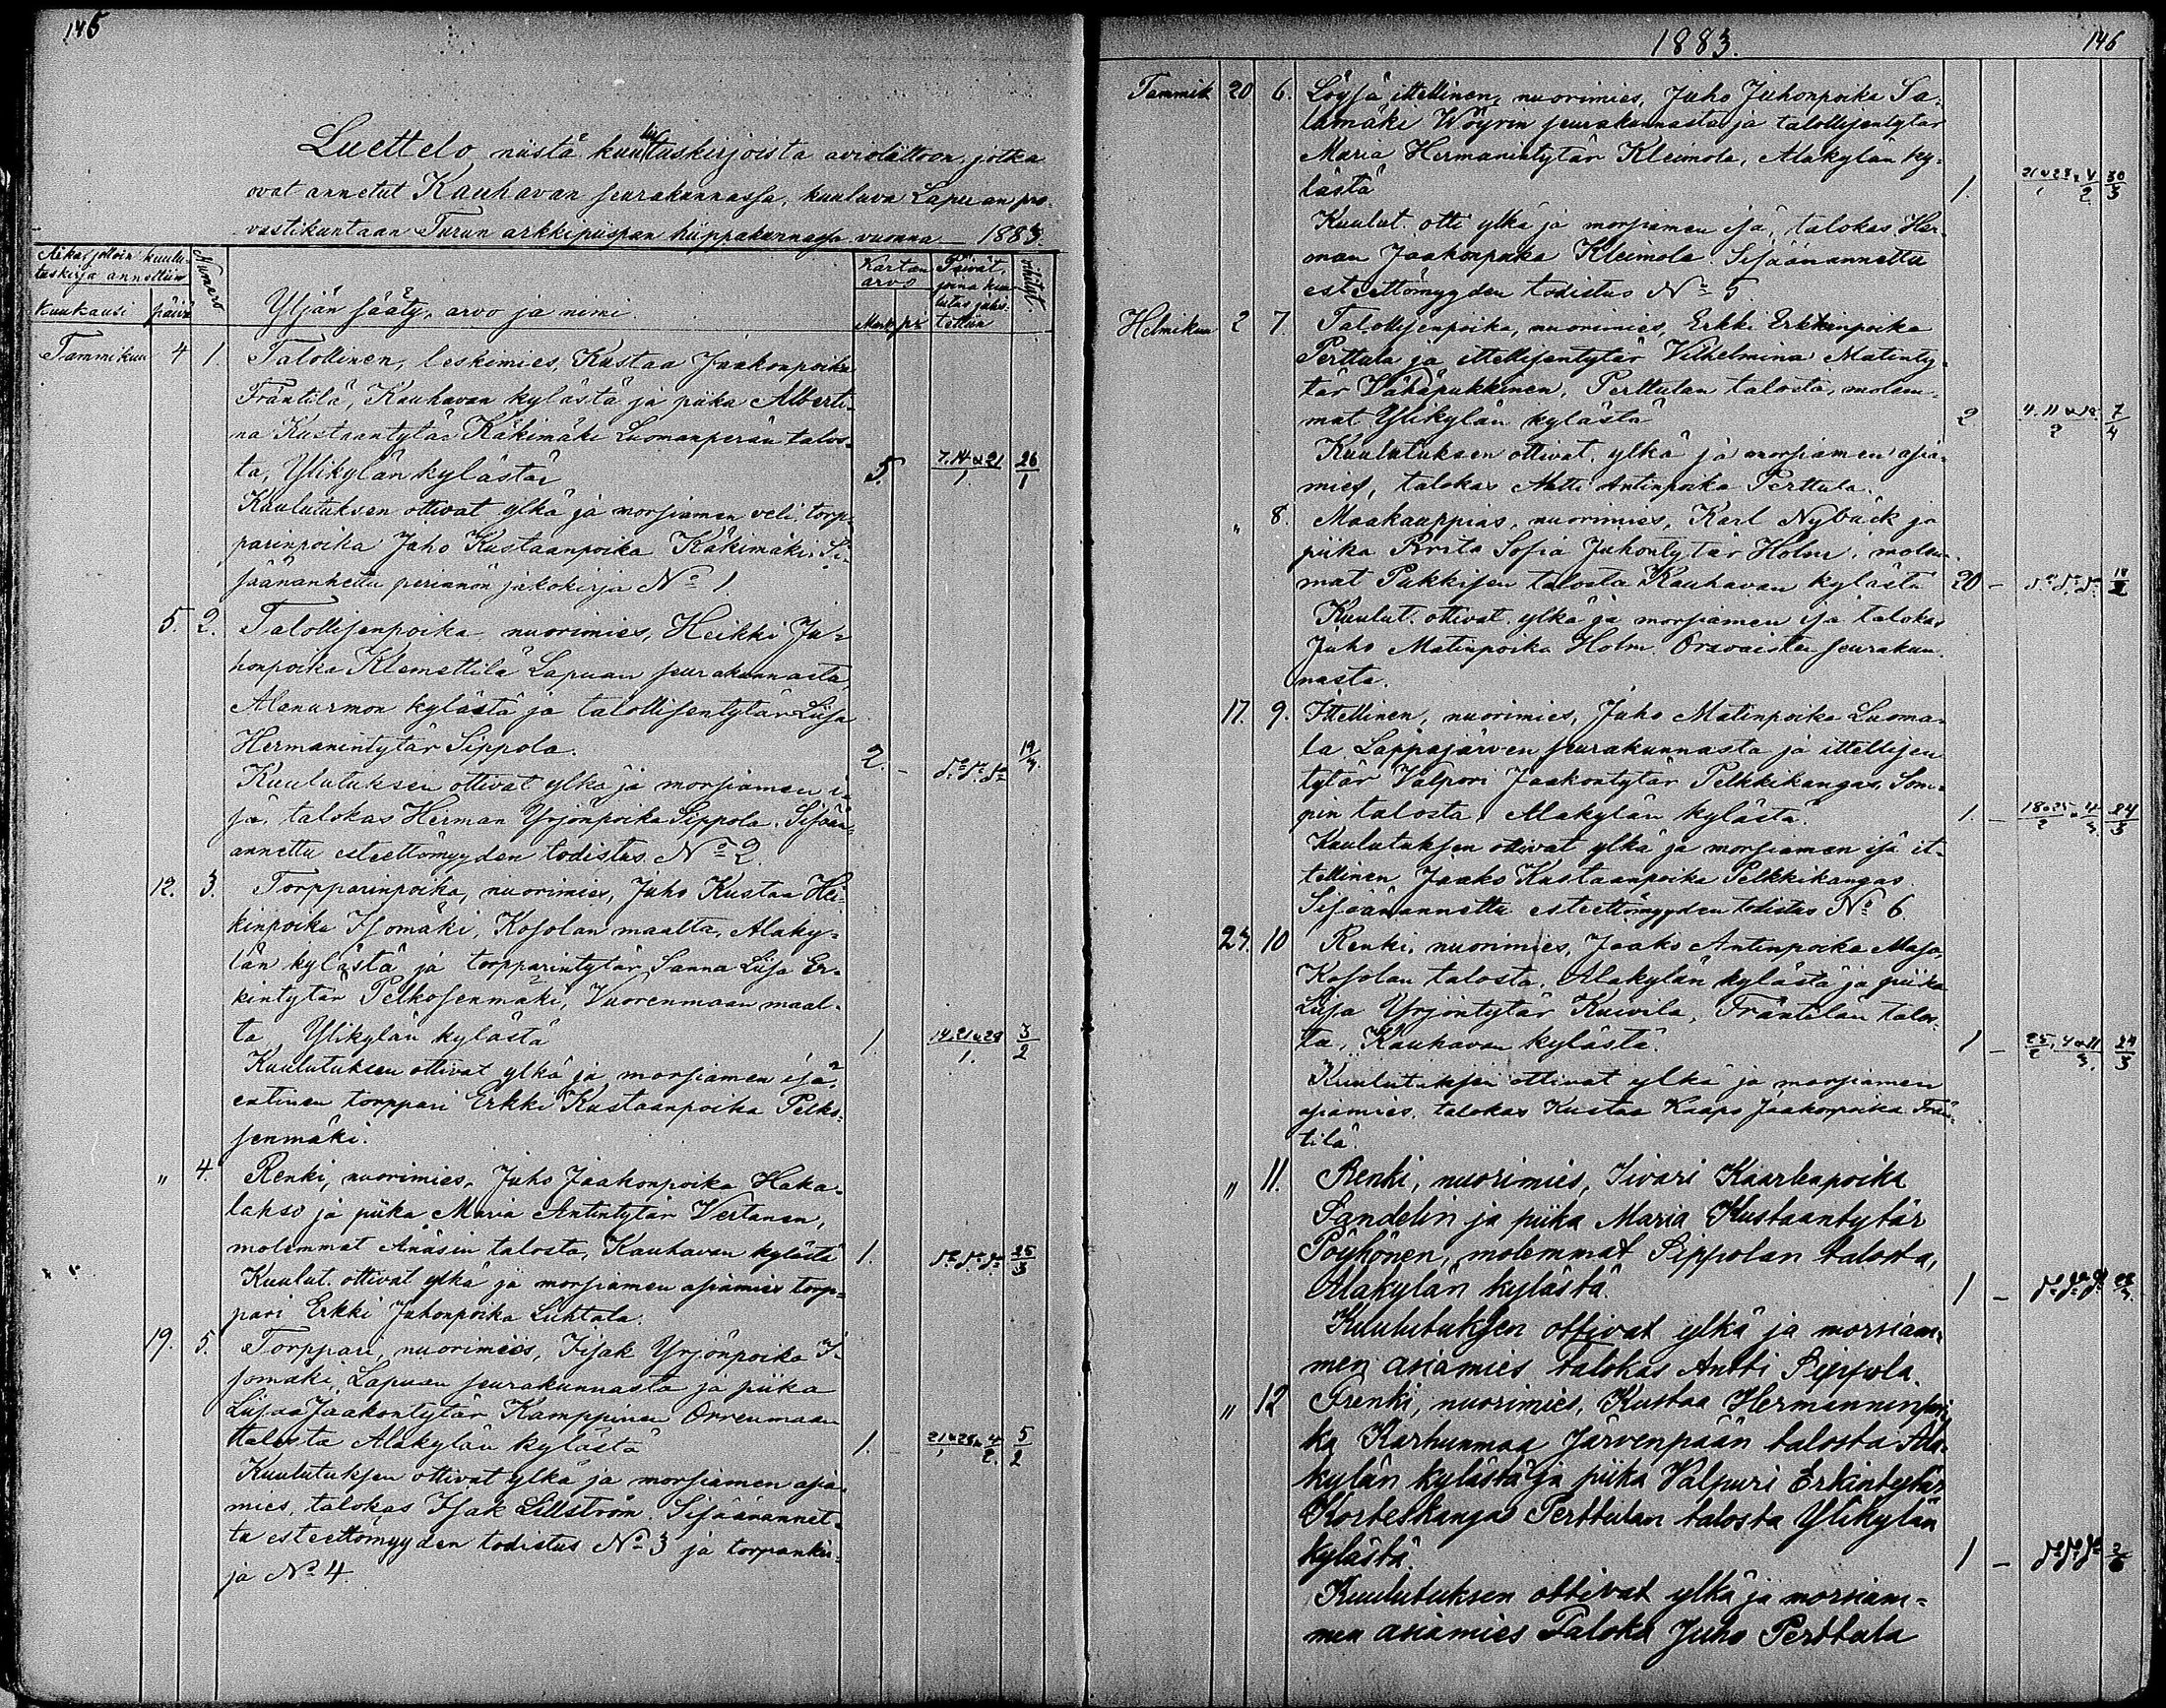 145
Luettelo niistä kuulutuskirjoista avioliittoon, jotka
ovat annetut Kauhavan seurakunnassa, kuuluva Lapuan pro-
vastikuntaan Turun arkkipiispan hiippakunnassa vuonna 1883.
Aika jolloin kuulu-
tuskirja annettiin
Kuukausi päivä
Numero
Yljän sääty, arvo ja nimi.
Kartan arvo
Mark pi
Päivät, joina kuu-
lutus julis-
tettiin
vihityt.
Tammikuu 4 1. Talollinen, leskimies, Kustaa Jaakonpoika
Fräntilä, Kauhavan kylästä ja piika Alberti-
na Kustaantytär Käkimäki Luomanperän talos-
ta, Ylikylän kylästä 5. 7.14 a 21/1 26/1
Kuulutuksen ottivat ylkä ja morsiamen veli, torp-
parinpoika Juho Kustaanpoika Käkimäki. Si-
säänannettu perinnön jakokirja No 1.
5. 2. Talollisenpoika nuorimies, Heikki Ju-
honpoika Klemettilä Lapuan seurakunnasta,
Alanurmon kylästä ja talollisentytär Liisa
Hermanintytär Sippola. 2. – do do do 19/3
Kuulutuksen ottivat ylkä ja morsiamen i-
sä, talokas Herman Yrjönpoika Sippola. Sisään-
annettu esteettömyyden todistus No 2.
12. 3. Torpparinpoika, nuorimies, Juho Kustaa Hei-
kinpoika Isomäki, Kosolan maalta, Alaky-
län kylästä ja torpparintytär Sanna Liisa Er-
kintytär Pelkosenmäki, Vuorenmaan maal-
ta Ylikylän kylästä 1. 14.21 a 28/1. 3/2
Kuulutuksen ottivat ylkä ja morsiamen isä,
entinen torppari Erkki Kustaanpoika Pelko-
senmäki.
" 4. Renki, nuorimies, Juho Jaakonpoika Haka-
lahso ja piika Maria Antintytär Vertanen,
molemmat Änäsin talosta, Kauhavan kylästä 1. do do do 25/3
Kuulut. ottivat ylkä ja morsiamen asiamies torp-
pari Erkki Juhonpoika Luhtala.
19. 5. Torppari, nuorimies, Iisak Yrjönpoika I-
somäki Lapuan seurakunnasta ja piika
Liisa Jaakontytär Kamppinen Orrenmaan
talosta Alakylän kylästä 1. – 21 a 28/1 4/2. 5/2
Kuulutuksen ottivat ylkä ja morsiamen asia-
mies, talokas Isak Lillström. Sisäänannet-
tu esteettömyyden todistus No 3 ja torpankir-
ja No 4.
1883. 146
Tammik 20 6. Löysä ittellinen, nuorimies, Juho Juhonpoika Sa-
lamäki Wöyrin seurakunnasta ja talollisentytär
Maria Hermanintytär Kleimola, Alakylän ky-
lästä 1. 21 a 28/1 4/2 30/3
Kuulut. otti ylkä ja morsiamen isä, talokas Her-
man Jaakonpoika Kleimola. Sisäänannettu
esteettömyyden todistus No 5.
Helmikuu 2 7. Talollisenpoika, nuorimies, Erkki Erkkinpoika
Perttula ja ittellisentytär Vilhelmina Matinty-
tär Vähäpukkinen, Perttulan talosta, molem-
mat Ylikylän kylästä 2 4.11 a 18/2 7/4
Kuulutuksen ottivat ylkä ja morsiamen asia-
mies, talokas Matti Antinpoika Perttula.
" 8. Maakauppias, nuorimies, Karl Nybäck ja
piika Brita Sofia Juhontytär Holm, molem-
mat Pukkisen talosta Kauhavan kylästä 20 – do do do
Kuulut. ottivat ylkä ja morsiamen isä talokas
Juho Matinpoika Holm Oravaisten seurakun-
nasta.
17. 9. Ittellinen, nuorimies, Juho Matinpoika Luoma-
la Lappajärven seurakunnasta ja ittellisen
tytär Valpori Jaakontytär Pelkkikangas, Som-
pin talosta, Alakylän kylästä. 1. – 18 a 25/2 4/3 24/3
Kuulutuksen ottivat ylkä ja morsiamen isä it-
tellinen Jaako Kustaanpoika Pelkkikangas
Sisäänannettu esteettömyyden todistus No 6.
24. 10 Renki, nuorimies, Jaako Antinpoika Maso,
Kosolan talosta, Alakylän kylästä ja piika
Liisa Yrjöntytär Kuivila, Fräntilän talos-
ta, Kauhavan kylästä. 1 – 25/2, 4 a 11/3. 24/3
Kuulutuksen ottivat ylkä ja morsiamen
asiamies, talokas Kustaa Kaapo Jaakonpoika Frän-
tilä.
" 11. Renki, nuorimies, Iivari Kaarlenpoika
Sandelin ja piika Maria Kustaantytär
Pöyhönen, molemmat Sippolan talosta,
Alakylän kylästä. 1 – do do do
Kuulutuksen ottivat ylkä ja morsiam-
men asiamies Talokas Antti Sippola.
" 12 Trenki, nuorimies, Kustaa Hermanninpoi-
ka Karhunmaa Järvenpään talosta Ala-
kylän kylästä ja piika Valpuri Erkintytär
Korteskangas Perttulan talosta Ylikylän
kylästä. 1 – do do do
Kuulutuksen ottivat ylkä ja morsiam-
men asiamies Taloka Juho Perttula